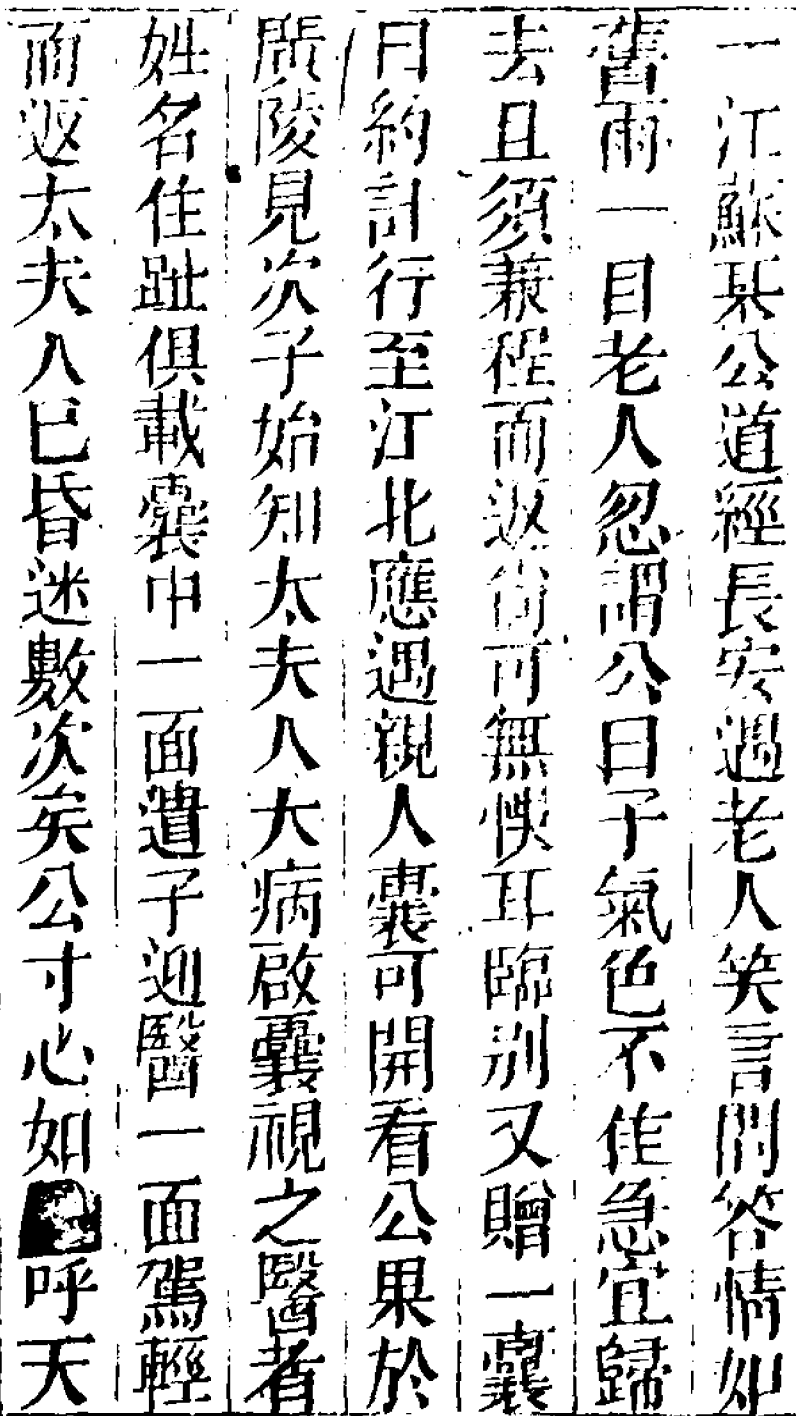 一江蘇某公道經長安遇老人笑言問答情如
舊雨一日老人忽謂公曰子氣色不佳急宜歸
去且須兼程而返尚可無悞耳臨别又贈一囊
曰約計行至江北應遇親人囊可開看公果於
廣陵見次子始知太夫人大病啟囊視之醫者
姓名住趾俱載囊中一面遣子迎醫一面駕輕
而返太夫人已昏迷數次矣公寸心如呼天